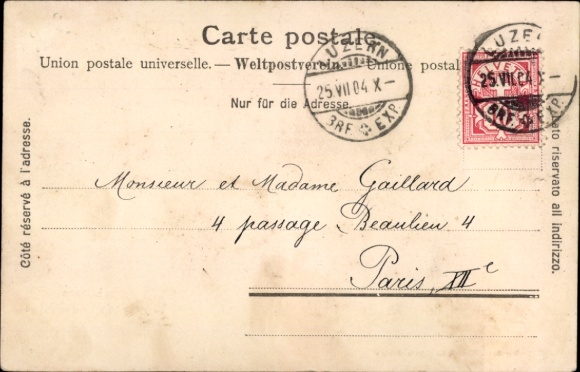 Carte postale.
Union postale universelle. — Weltpostverein. — Unione postal
Nur für die Adresse.
LUZERN
25.VII.04.X—
BRF. EXP.
HELVETIA
LUZERN
25.VII.04.X—
BRF. EXP.
Côté réservé à l'adresse.
lato riservato all indirizzo.
Monsieur et Madame Gaillard
4 passage Beaulieu 4
Paris, XIIe